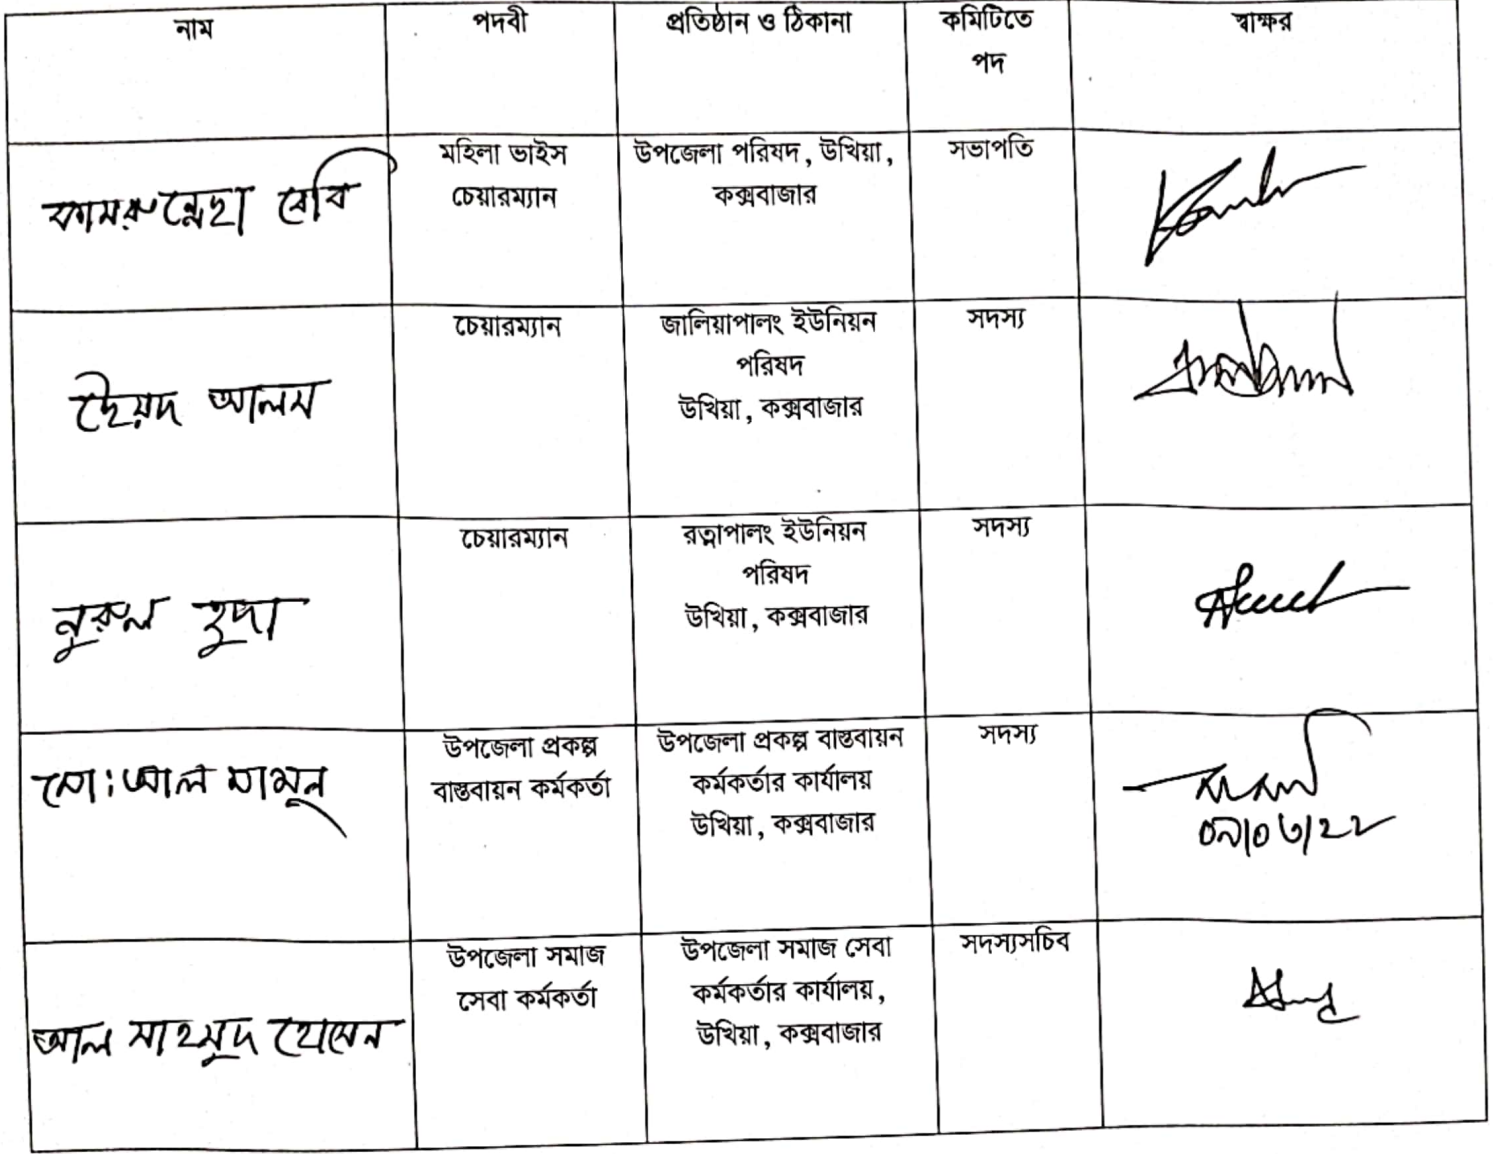 নাম পদবী প্রতিষ্ঠান ও ঠিকানা কমিটিতে স্বাক্ষর
পদ
কামরুন্নেছা বেবি
মহিলা ভাইস
চেয়ারম্যান
উপজেলা পরিষদ, উখিয়া,
কক্সবাজার
সভাপতি
ছৈয়দ আলম
চেয়ারম্যান
জালিয়াপালং ইউনিয়ন
পরিষদ
উখিয়া, কক্সবাজার
সদস্য
নুরুল হুদা
চেয়ারম্যান
রত্নাপালং ইউনিয়ন
পরিষদ
উখিয়া, কক্সবাজার
সদস্য
মো: আল মামুন
উপজেলা প্রকল্প
বাস্তবায়ন কর্মকর্তা
উপজেলা প্রকল্প বাস্তবায়ন
কর্মকর্তার কার্যালয়
উখিয়া, কক্সবাজার
সদস্য
আল মাহমুদ হোসেন
উপজেলা সমাজ
সেবা কর্মকর্তা
উপজেলা সমাজ সেবা
কর্মকর্তার কার্যালয়,
উখিয়া, কক্সবাজার
সদস্যসচিব